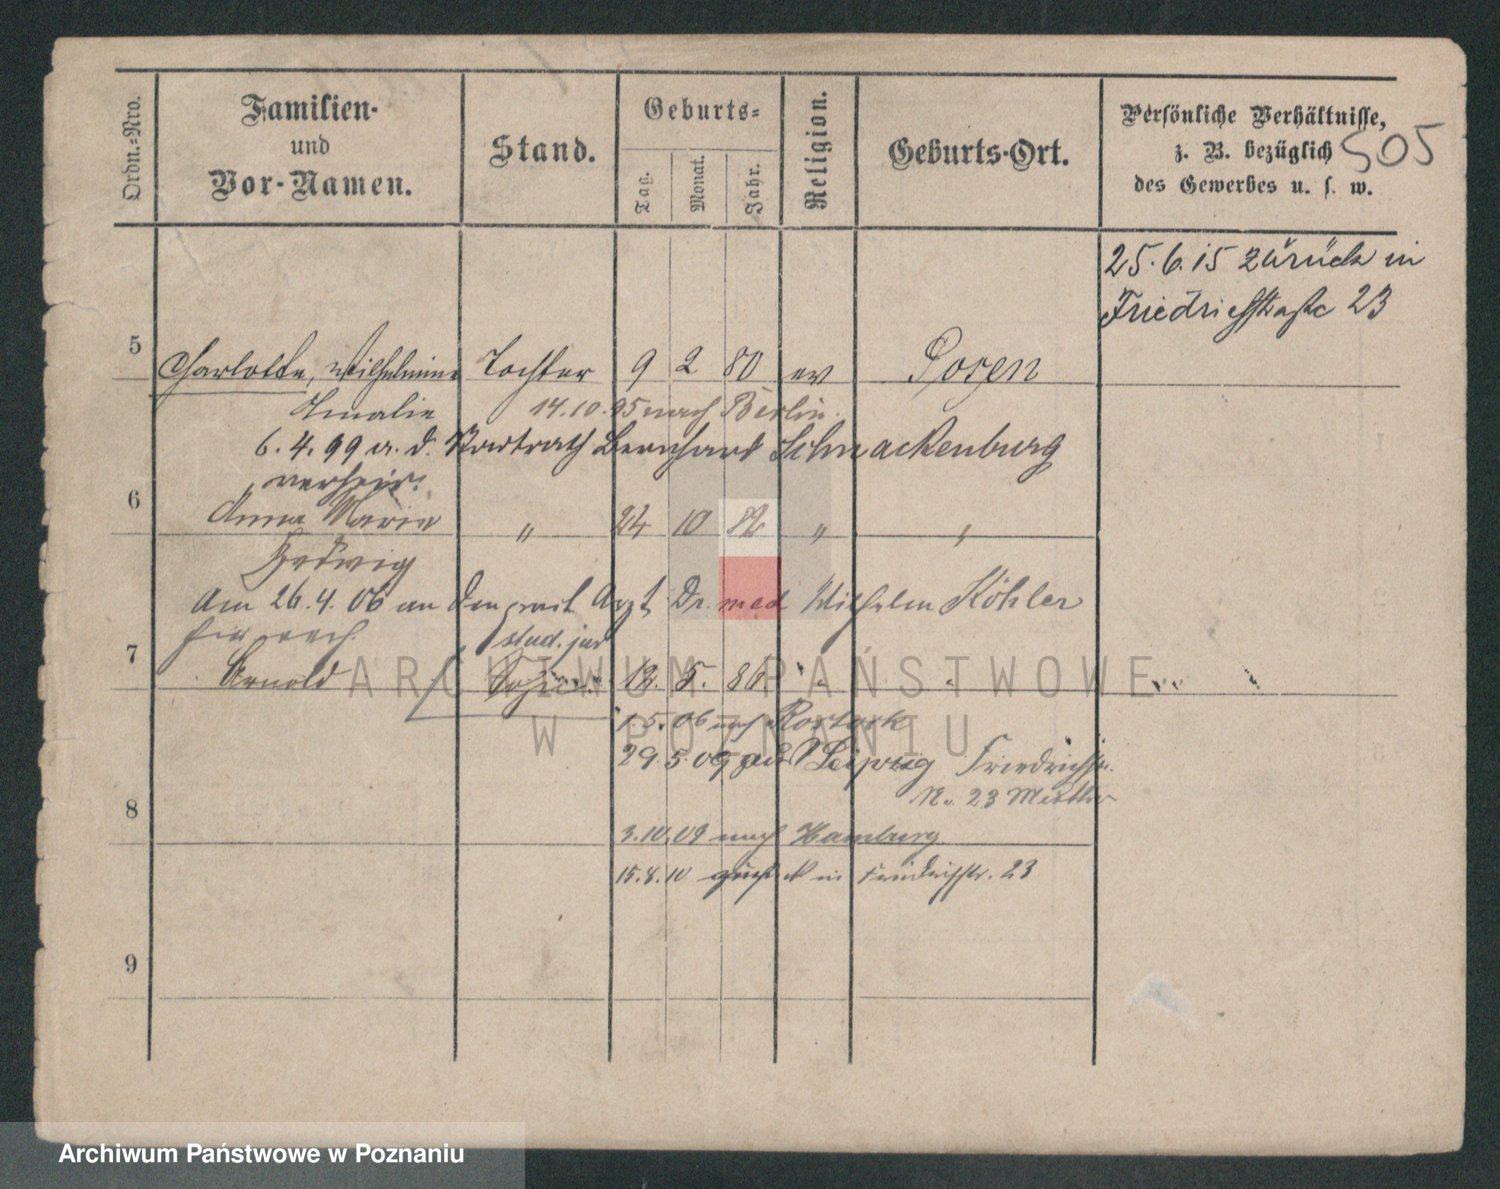 Ordn.-Nro.
Familien-
und
Vor-Namen.
Stand.
Geburts=
Tag.
Monat.
Jahr.
Religion.
Geburts-Ort.
Persönliche Verhältnisse,
z. B. bezüglich
des Gewerbes u. s. w.
505
25.6.15 zurück in
Friedrichstraße 23
5
Charlotte, Wilhelmine Tochter 9 2 80 ev Posen
Amalie 14.10.95 nach Berlin.
6.4.99 a. d. Bernhard Schnackenburg
verheir.
6
Anna Marie " 24 10 82 " "
Hedwig
Am 26.4.06 an den prakt Arzt Dr. med Wilhelm Köhler
stud. jur
7
Arnold Sohn 12. 5. 86 " "
1.5.06 nach Rostock
29.5.09 aus Leipzig Friedrichstr.
N. 23 Mutter
8
3.10.09 nach Hamburg.
15.8.10 zurück in Friedrichstr. 23
9
ARCHIWUM PAŃSTWOWE
W POZNANIU
Archiwum Państwowe w Poznaniu